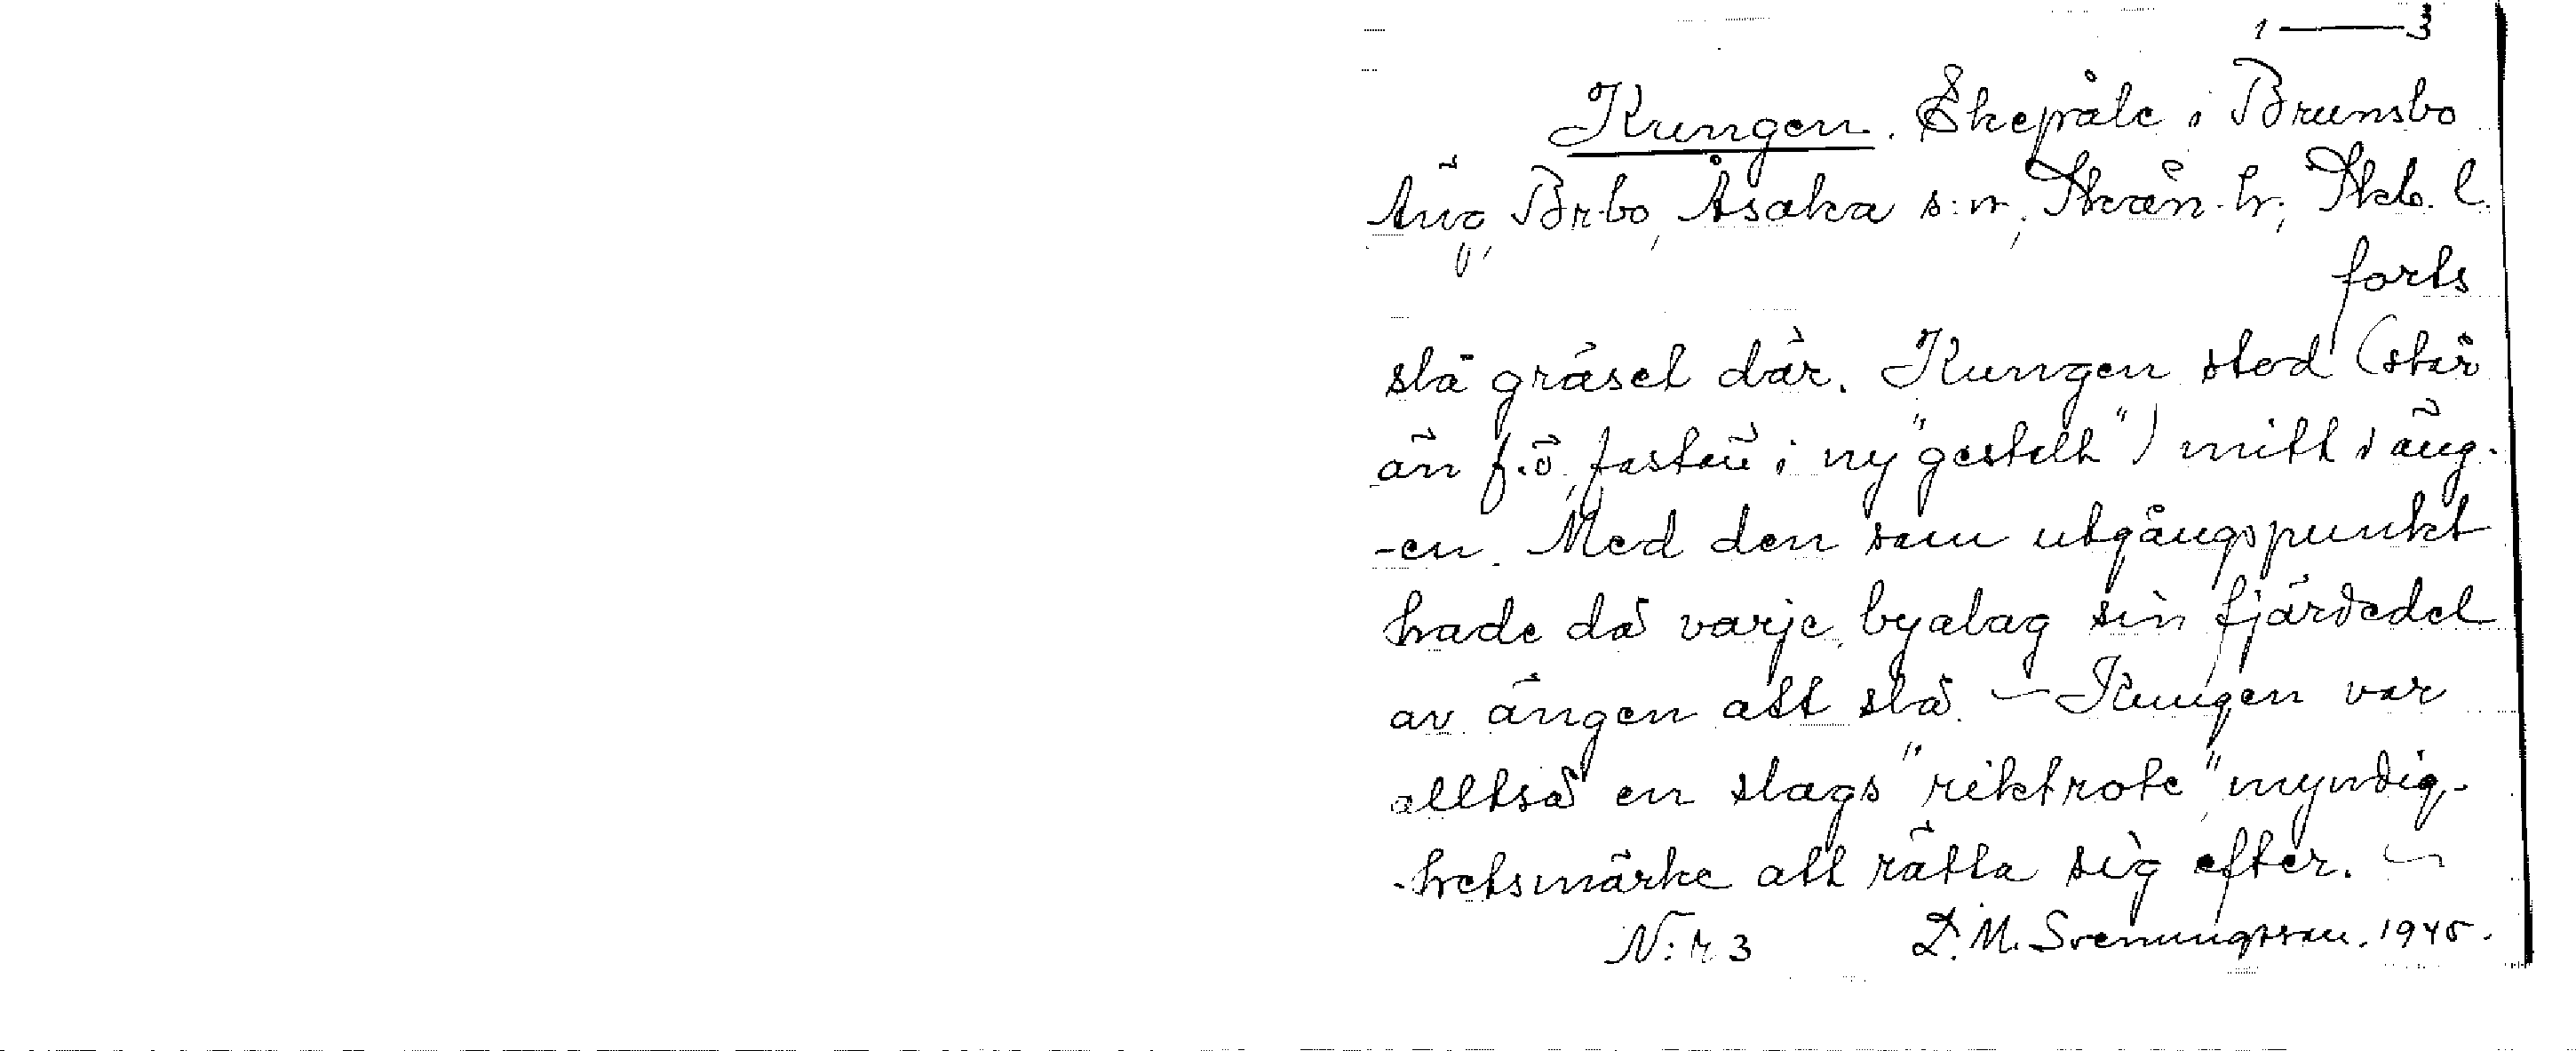 1 — 3
Kungen. Ekepåle i Brunsbo
Äng, Brbo, Åsaka s:n, Skån. hr, Skb. l.
forts
slå gräset där. Kungen stod (står
än f.ö, fastän i ny "gestalt") mitt i äng-
-en. Med den som utgångspunkt
hade då varje byalag sin fjärdedel
av ängen att slå. — Kungen var
alltså en slags "riktrote" myndig-
-hetsmärke att rätta sig efter. —
N:r 3 D. M. Svenungsson. 1945.